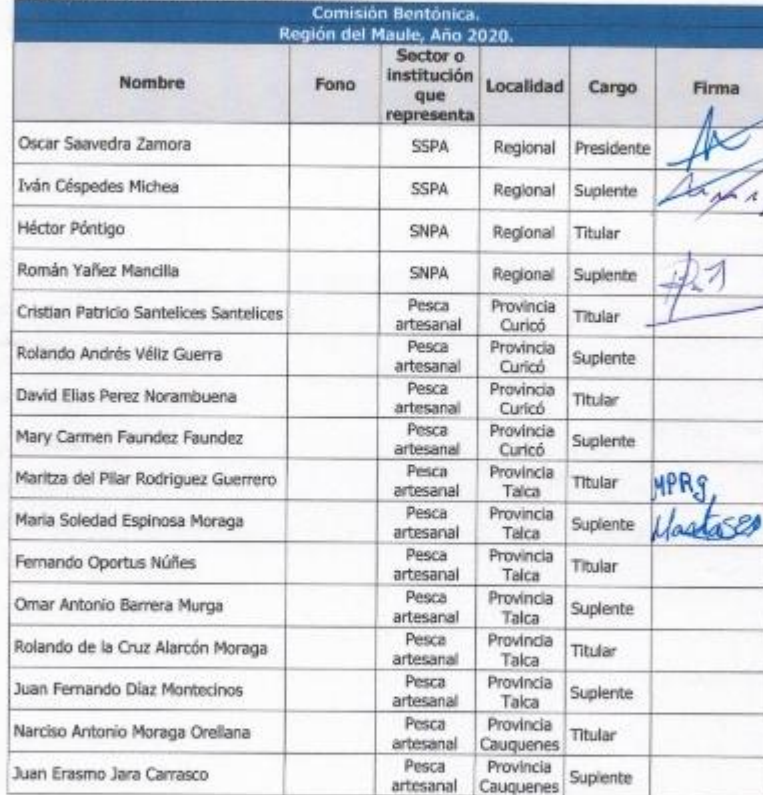 Comisión Bentónica.
Región del Maule, Año 2020.
Nombre Fono Sector o institución que representa Localidad Cargo Firma
Oscar Saavedra Zamora SSPA Regional Presidente
Iván Céspedes Michea SSPA Regional Suplente
Héctor Póntigo SNPA Regional Titular
Román Yañez Mancilla SNPA Regional Suplente
Cristian Patricio Santelices Santelices Pesca artesanal Provincia Curicó Titular
Rolando Andrés Véliz Guerra Pesca artesanal Provincia Curicó Suplente
David Elias Perez Norambuena Pesca artesanal Provincia Curicó Titular
Mary Carmen Faundez Faundez Pesca artesanal Provincia Curicó Suplente
Maritza del Pilar Rodriguez Guerrero Pesca artesanal Provincia Talca Titular MPRg
Maria Soledad Espinosa Moraga Pesca artesanal Provincia Talca Suplente
Fernando Oportus Núñes Pesca artesanal Provincia Talca Titular
Omar Antonio Barrera Murga Pesca artesanal Provincia Talca Suplente
Rolando de la Cruz Alarcón Moraga Pesca artesanal Provincia Talca Titular
Juan Fernando Díaz Montecinos Pesca artesanal Provincia Talca Suplente
Narciso Antonio Moraga Orellana Pesca artesanal Provincia Cauquenes Titular
Juan Erasmo Jara Carrasco Pesca artesanal Provincia Cauquenes Suplente